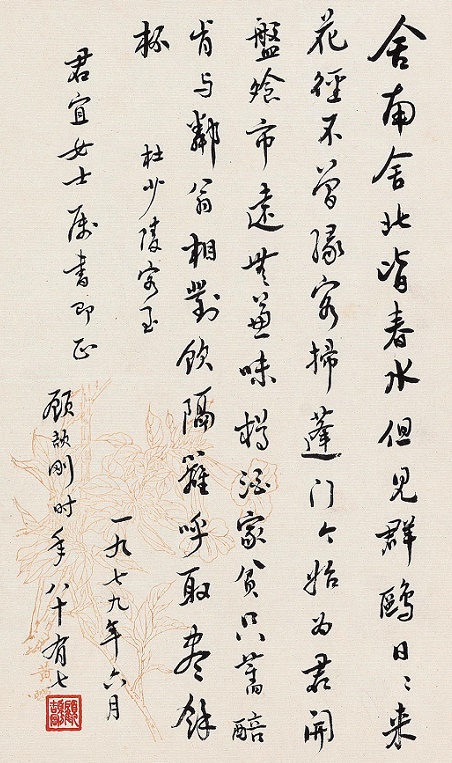 舍南舍北皆春水但见群鷗日々来
花徑不曾缘客掃蓬门今始为君開
盤飧市遠無兼味樽酒家贫只舊醅
肯与鄰翁相對飲隔籬呼取盡餘
杯
杜少陵客至
君宜女士属書即正
一九七九年六月
顾颉刚时年八十有七